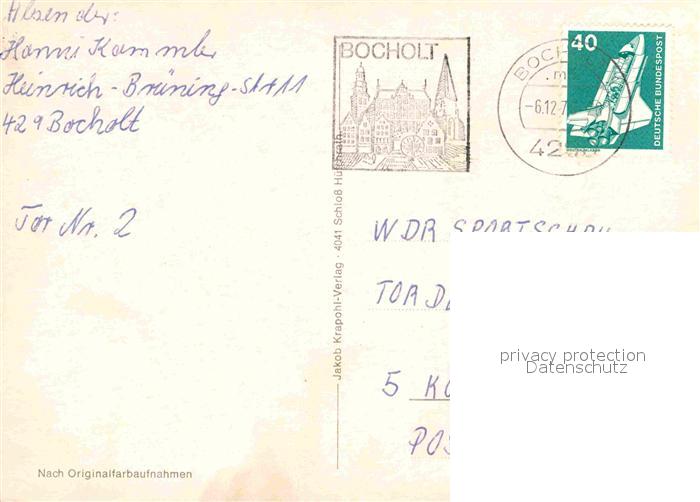 Absender:
Hanni Kammler
Heinrich-Brüning-Str 11
429 Bocholt
Tor Nr. 2
BOCHOLT
BOCHOLT
-6.12.7
42
40
DEUTSCHE BUNDESPOST
WDR SPORTSCHAU
TOR D
5 K
POS
privacy protection
Datenschutz
Jakob Krapohl-Verlag · 4041 Schloß Hülchrath
Nach Originalfarbaufnahmen